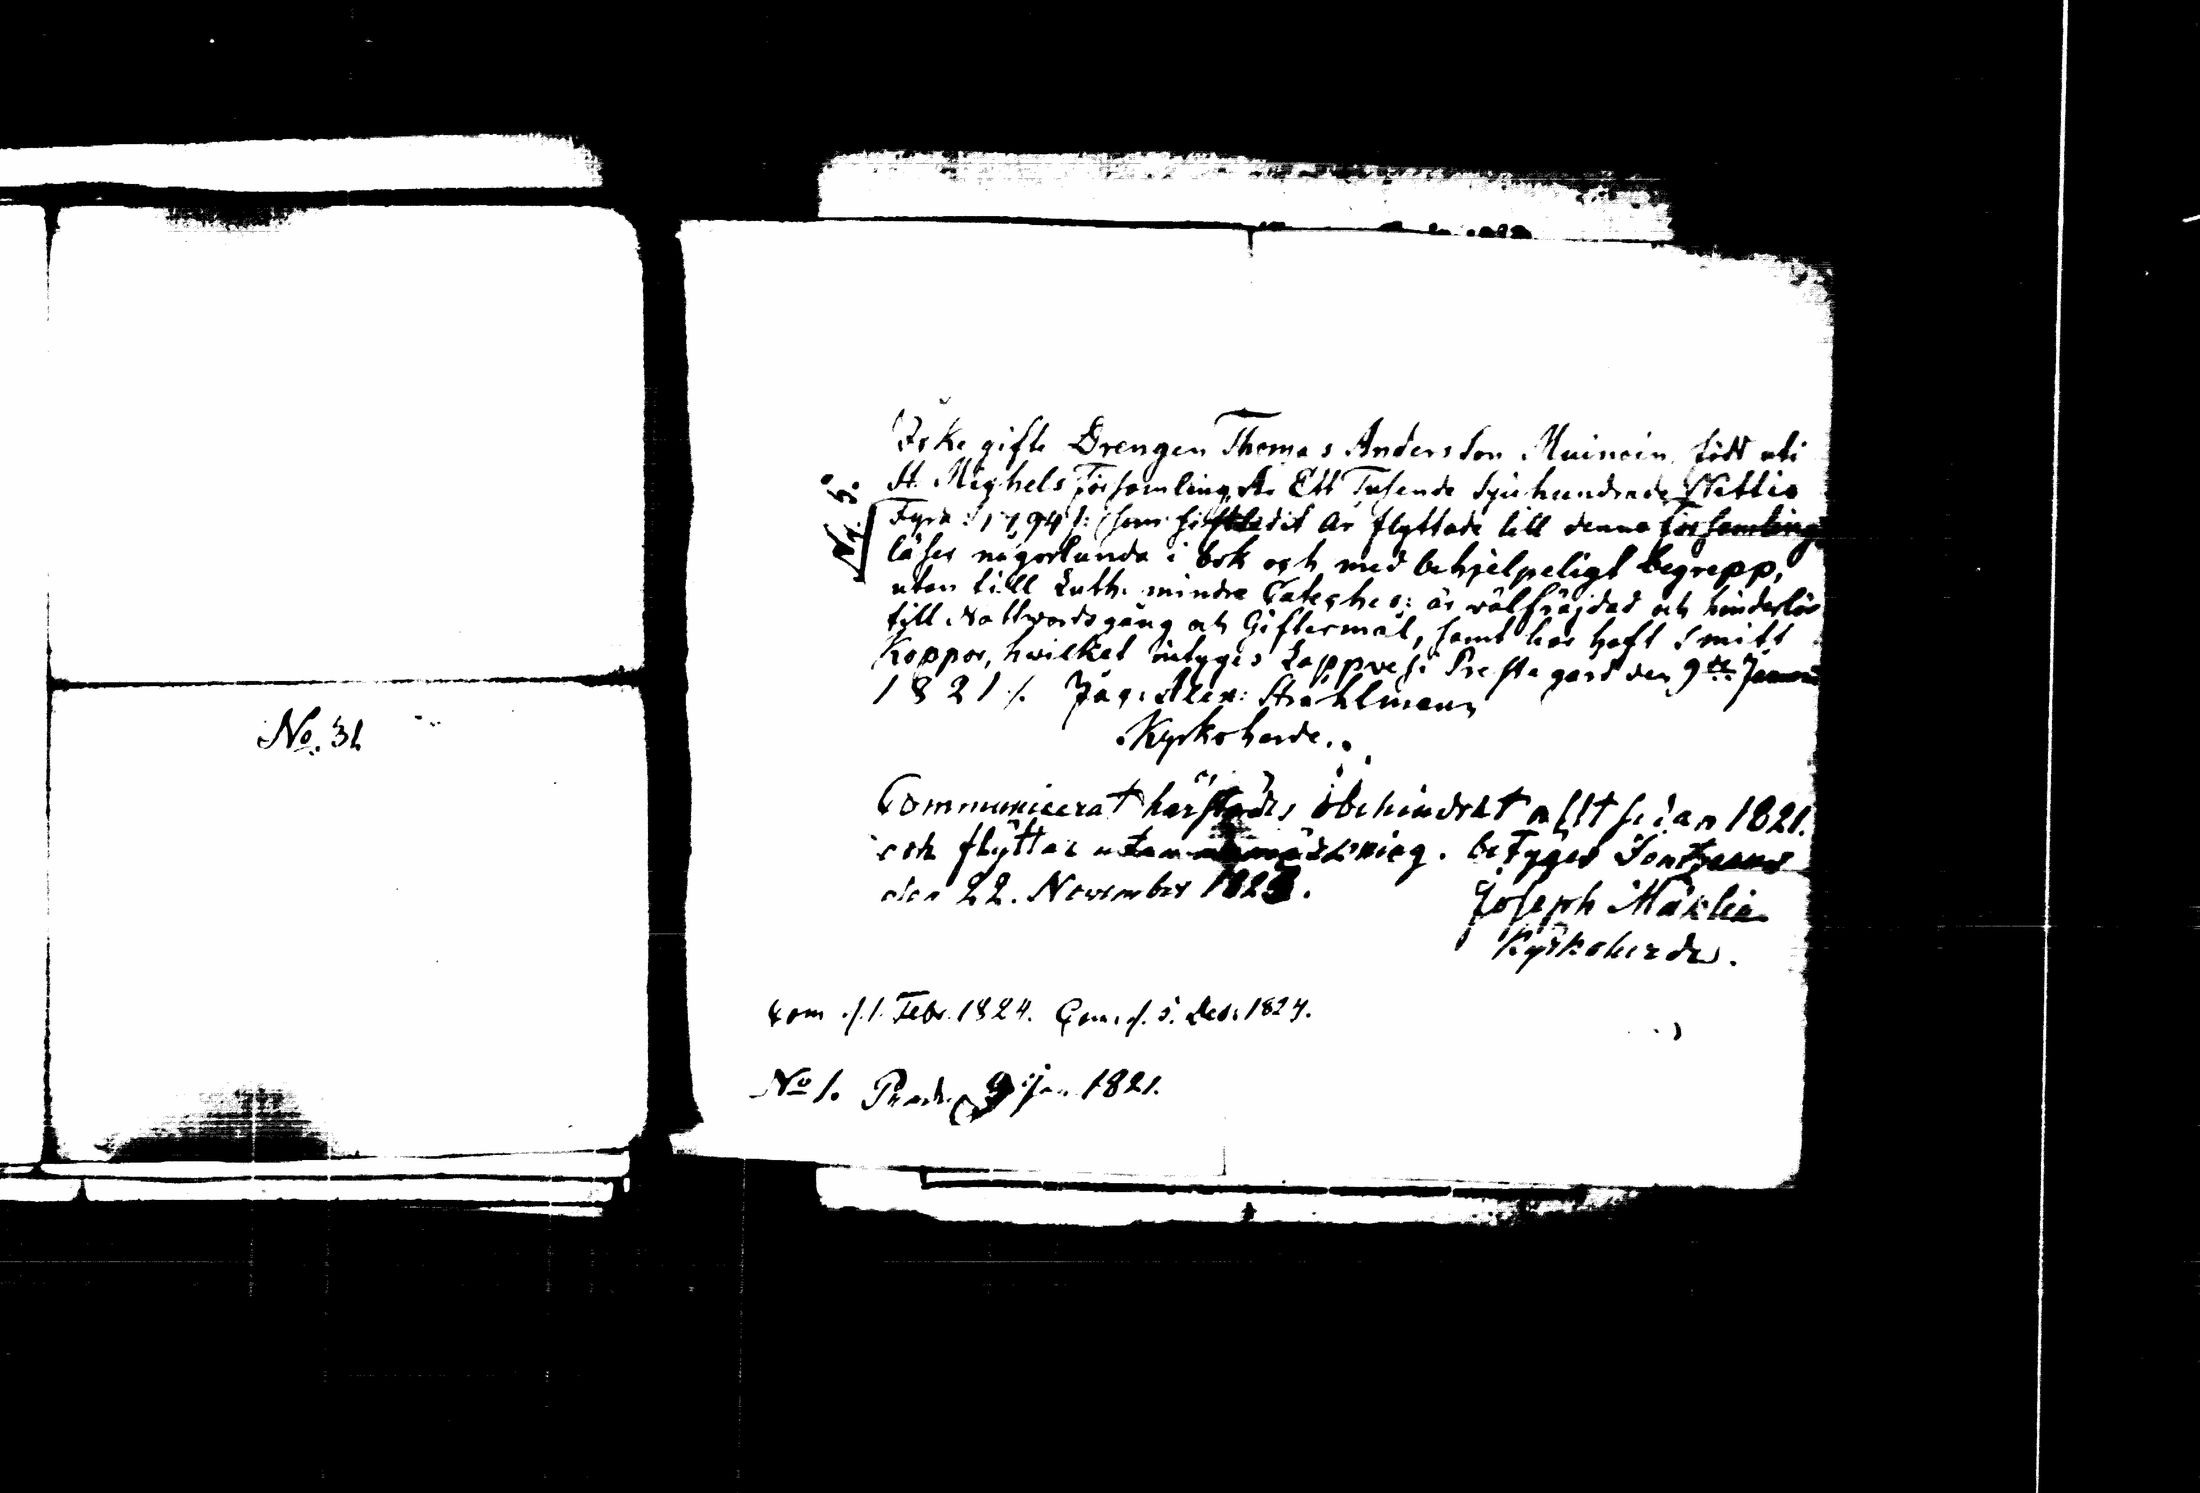 No. 31
No. 5.
Icke gifte Drengen Thomas Andersson Muinoin, född uti
St. Mighels Församling År Ett Tusende Sjuhundrade Nittio
Fyra :/1794/: som sistledit År flyttade till denna Församling
läser någorlunda i bok och med behjelpeligt begrepp,
utan till Luth. mindre Cateches: är välfräjdad och hinderlös
till Nattvardsgång och Giftermål, samt har haft Smitt
Koppor, hwilket intygis Lappvesi Prestagård den 9de Januarii
1821 /. Jag. Alex: Strahlmann
Kyrkoherde.
Communicerat härstädes obehindrat allt sedan 1821.
och flyttar utan. betyges
den 22. November 1823. Joseph Mäklin
Kyrkoherde.
Com. d. 1. Febr. 1824. Com. d. 5. Dec. 1824.
No 1. Prod. 9 Jan 1821.